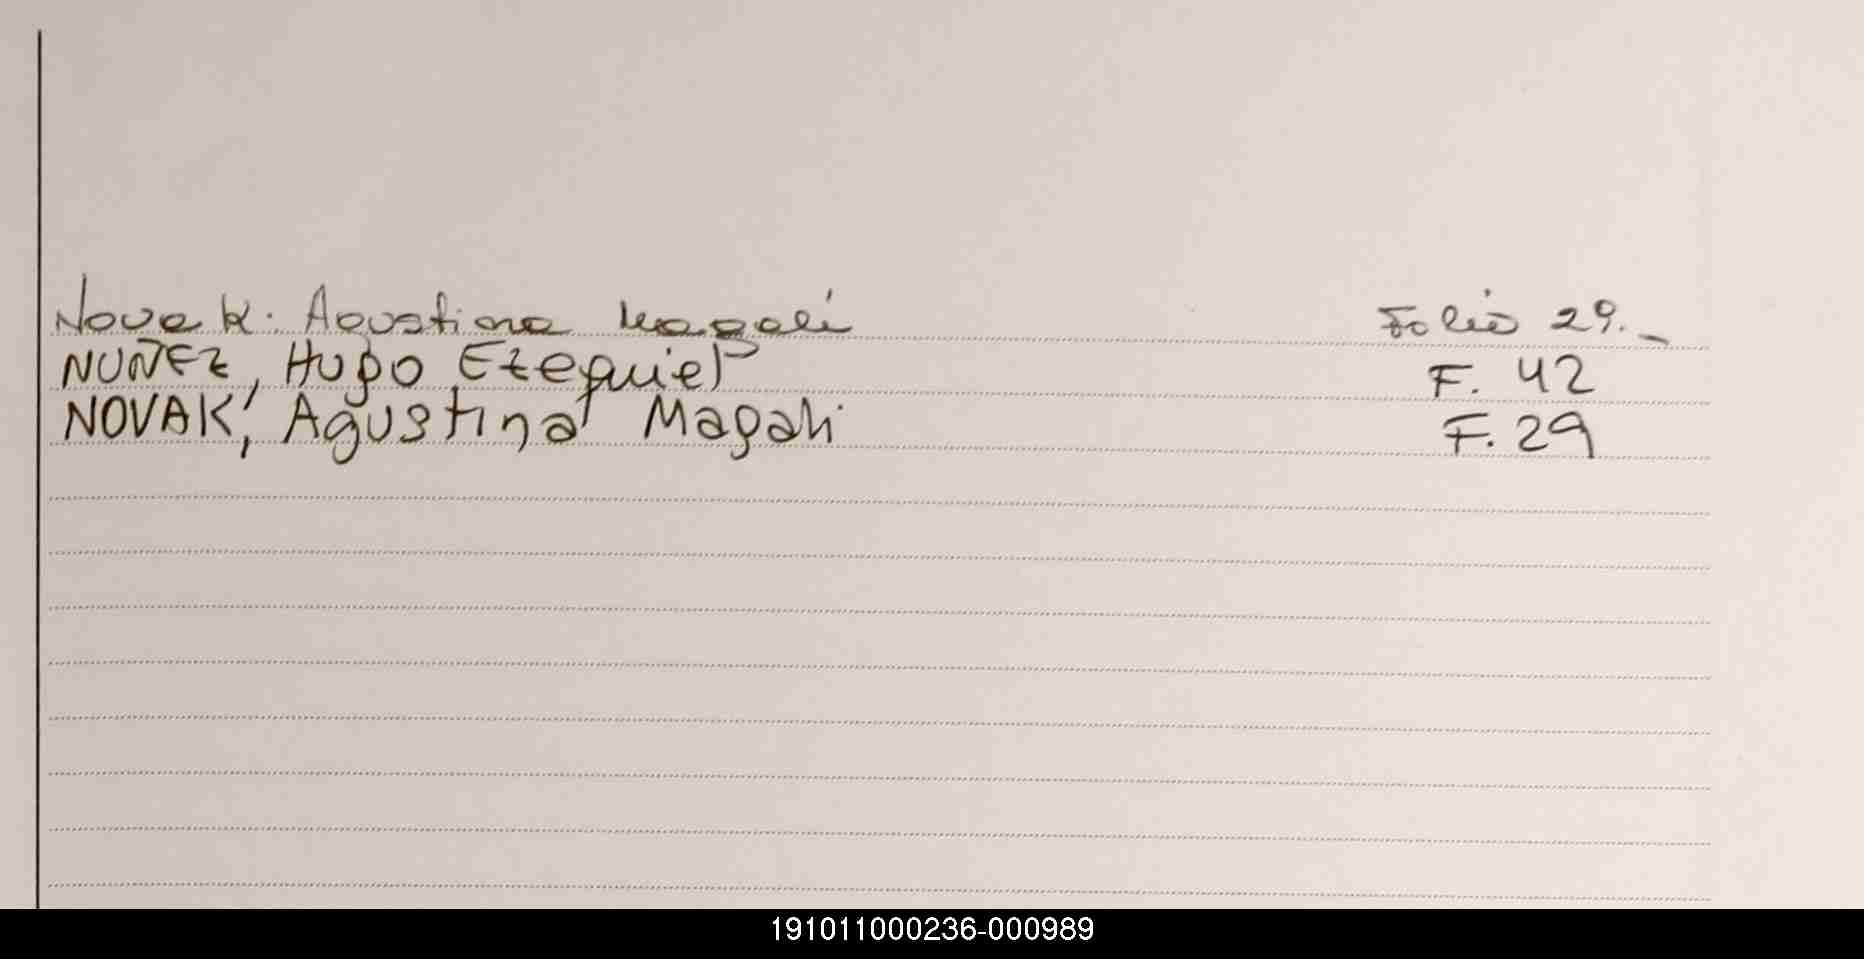 Novak. Agustina Magalí Folio 29._
NUÑEZ, HUgO Ezequiel F. 42
NOVAK, Agustina Magali F. 29
191011000236-000989